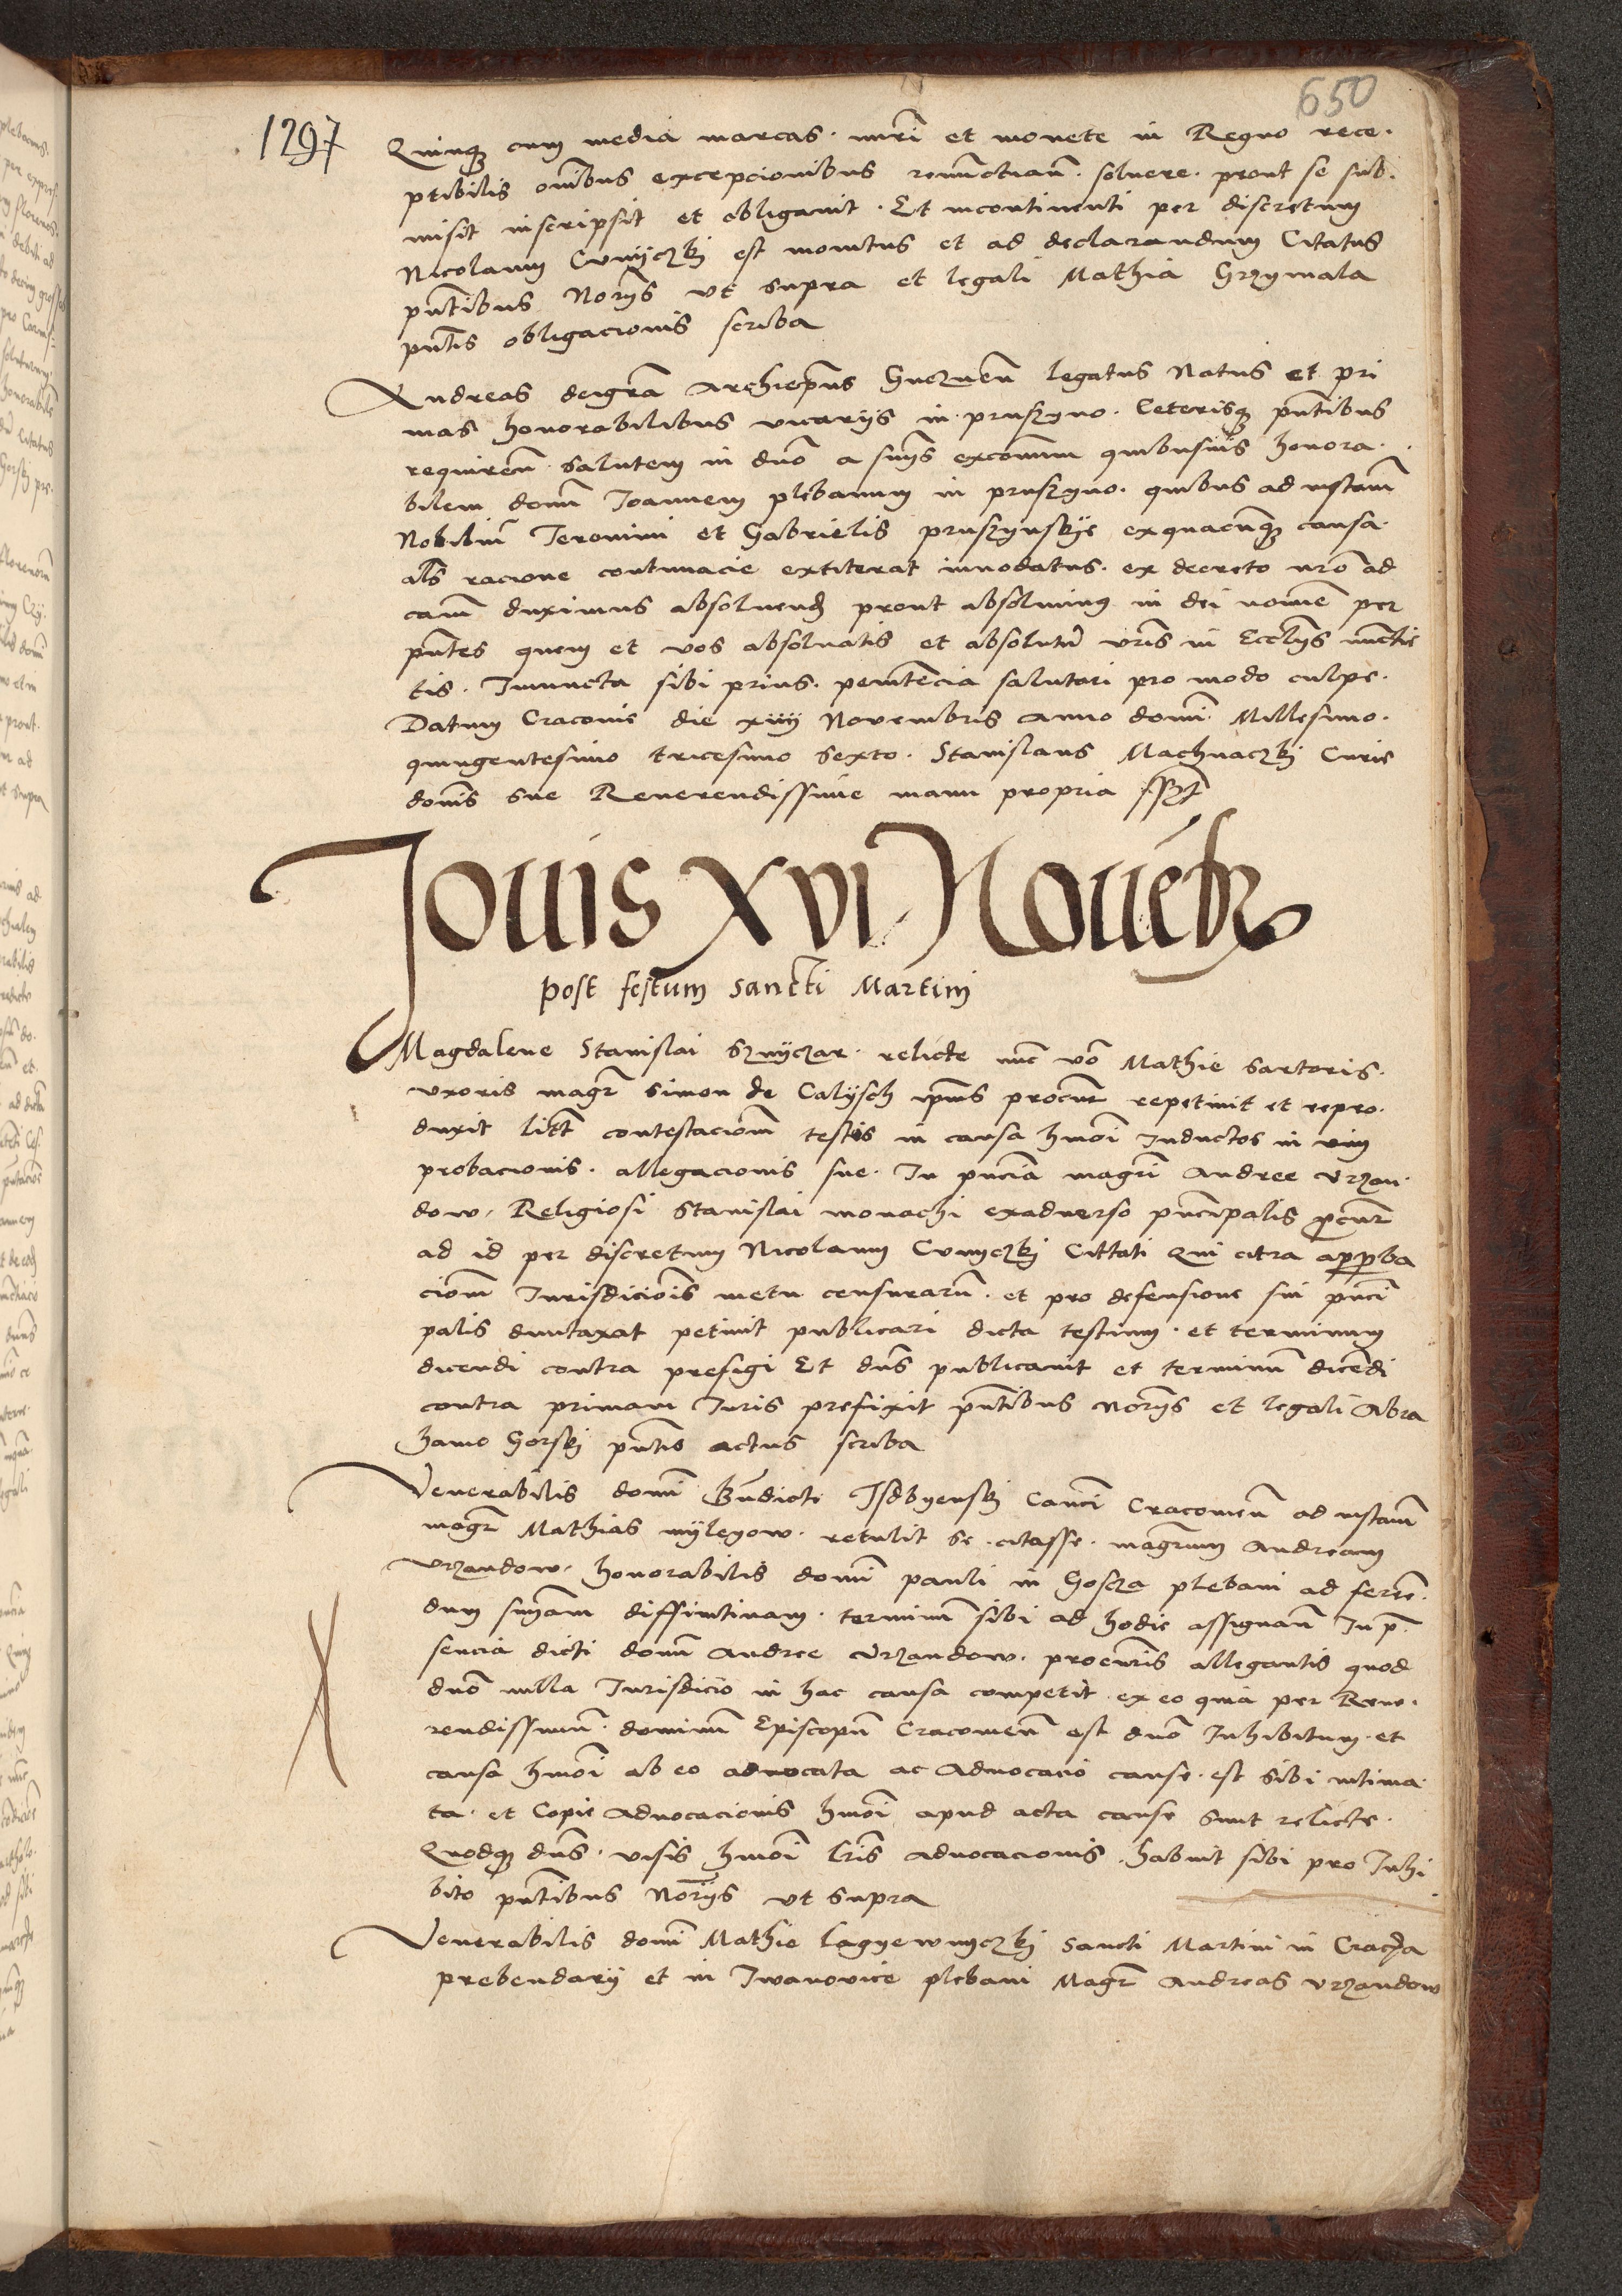 650
1297
Quinq3 cum media marcas · nu̅ri et monete in Regno rece·
ptibilis om̅ibus excepcionibus renu̅ctiatu̅ · soluere · prout se sub·
misit inscripsit et obligauit · Et incontinenti per discretum
Nicolaum Cunyczkj est monitus et ad declarandum Citatus
pn̅tibus Nor̅ijs vt supra et legali Mathia Grzymala
pn̅tis obligacionis scriba
Andreas deigr̅a Archiep̅us Gneznen̅ legatus Natus et pri
mas honorabilibus vicarijs in pruszyno · Ceterisq3 pn̅tibus
requiren̅ · salutem in dn̅o a sn̅ijs excom̅um quibusuis honora·
bilem dom̅ Joannem plebanum in pruszyno · quibus ad instam̅
Nobiliu̅ Jeronimi et Gabrielis pruszynskye ex quacu̅q3 causa·
al̅s racione contumacie extiterat innodatus · ex decreto nr̅o ad
cam̅ duximus absoluend prout absoluim9 in dei nom̅e per
pn̅tes quem et vos absoluatis et absolutu̅ vr̅is in Eccl̅ijs nu̅ctie
tis · Iniuncta sibi prius · penite̅cia salutari pro modo culpe·
Datum Cracouie die xiiij Novembris anno domi̅ Millesimo·
quingentesimo tricesimo sexto · Stanislaus Machnaczkj Curie
dom̅s sue Reuerendissime manu propria sszt
Jouis xvi Noue̅br
post festum sancti Martini
Magdalene Stanislai Sznyczar · relicte nu̅c vo̅ Mathie sartoris·
vxoris magr̅ Simon de Calysch ip̅ius procur̅ repetiuit et repro·
duxit litt̅ contestaciom̅ testes in causa hm̅oi Inductos in vim
probacionis · allegacionis sue · In pn̅cia magr̅i Andree Vrzan·
dow · Religiosi Stanislai monachi exaduerso pn̅cipalis p̱cur̅
ad id per discretum Nicolaum Cunyczkj Cittati Qui citra app̱ba
ciom̅ Jurisdicio̅is metu censuraru̅ · et pro defensione sui pn̅ci
palis duntaxat petiuit publicari dicta testium · et terminum
dicendi contra prefigi Et dn̅s publicauit et terminu̅ dice̅di
contra primam Juris prefixit pn̅tibus Nor̅ijs et legali Abra
hamo Gorskj pn̅tis actus scriba
Venerabilis domi̅ Bn̅dicti Jsdbyenskj Can̅ci Cracouien̅ ad instam̅
magr̅ Mathias mylegow · retulit se · citasse · magr̅um Andream
Vrzandow · honorabilis domi̅ pauli in Goscza plebani ad feren̅·
dum sn̅iam diffinitiuam · terminu̅ sibi ad hodie assignatu̅ In p̅·
sencia dicti domi̅ Andree Vrzandow · procur̅is allegantis quod
dn̅o nulla Jurisdicio in hac causa competit ex eo quia per Reue·
rendissimu̅ · dominu̅ Episcopu̅ Cracouien̅ est dn̅o Inhibitum · et
causa hm̅oi ab eo aduocata ac Aduocacio cause · est sibi intima·
ta · et Copie Aduocacionis hm̅oi apud acta cause sunt relicte·
Quodq3 dn̅s · visis hm̅oi lr̅is aduocacionis · habuit sibi pro Inhi
bito pn̅tibus Nor̅ijs vt supra
Venerabilis domi̅ Mathie Lagyewnyczkj Sancti Martini in Crac̅ia
prebendarij et in Iwanovice plebani Magr̅ Andreas Vrzandow